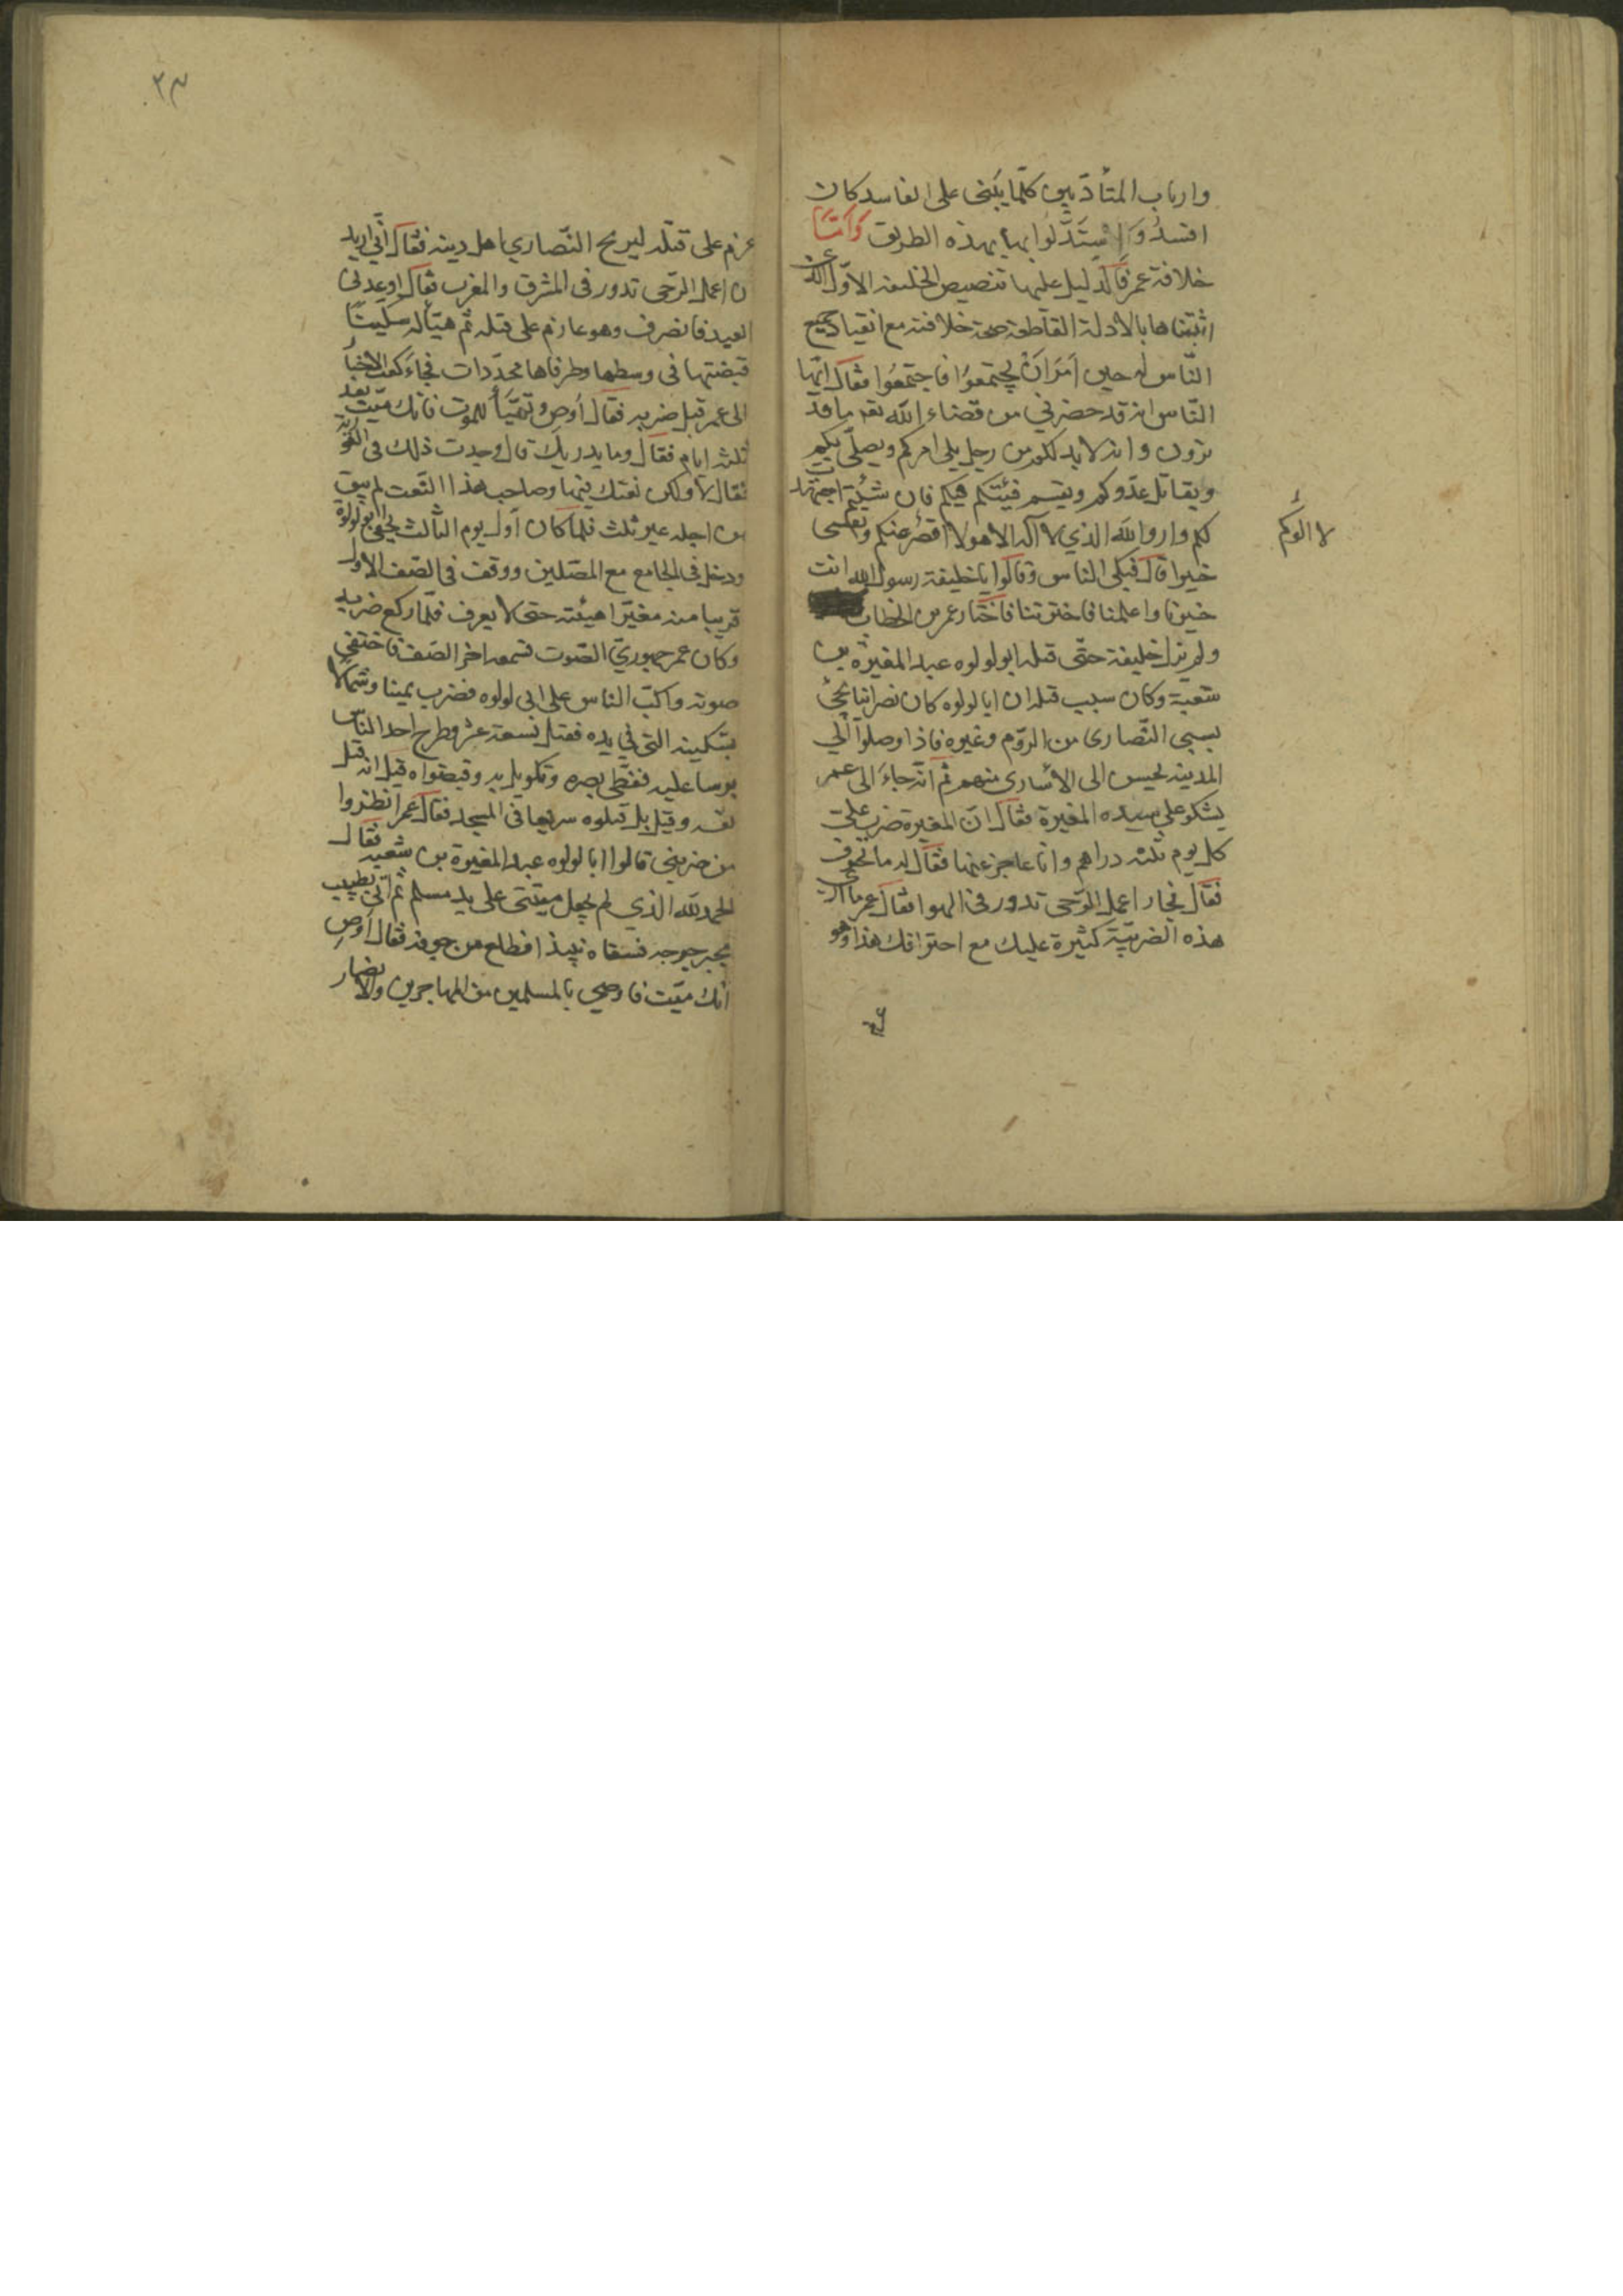 وارباب المتأدّبين كلّما يبنى على الفاسد كان
افسدُ وَاِسْتَدَلُّوا بها بهذه الطريق وَامّا
خلافة عمر فالدليل عليها تنصيص الخليفة الاوّل الذى
اثبتناها بالادلة القاطعة صحة خلافته مع انقياد جميع
النّاس له حين اَمَرَ اَنْ يجتمعُوا فاجتمعُوا فقال ايّها
النّاس انه قد حضرنى من قضاء الله تعـ ما قد
ترون وانه لا بد لكم من رجل يلى امركم ويصلّى بكم
ويقاتل عدّوكم ويقسم فيئكم فيكم فان شئتم اجتهدت
لكم وارو الله الذي لا اله الاهو لا اقصر عنكم ونفسى
خيرا قال فبكى الناس وقالوا يا خليفة رسول الله انت
خيرنا واعلمنا فاختر لنا فاختار عمر بن الخطاب
ولم يزل خليفة حتّى قتله ابو لولوه عبد المغيرة بن
شعبة وكان سبب قتله ان ابا لولوه كان نصرانيا يجئ
بسبى النّصارى من الروّم وغيره فاذا وصلوا الي
المدينه يحبس الى الأسارى منهم ثم انّه جاء الى عمر
يشكو على سيده المغيرة فقال انّ المغيرة ضرب علىّ
كل يوم ثلثه دراهم وانا عاجز عنها فقال له ما تحترف
فقال نجار اعمل الرّحى تدور فى الهوا فقال عمر ما ارى
هذه الضريبّة كثيرة عليك مع احترافك هذا وهو
لا الوكم
٣٣
عزم على قتله ليريح النّصاري اهل دينه فقال انّي اريد
ان اعمل الرّحى تدور فى المشرق والمغرب فقال اوعدنى
العبد فانصرف وهو عازم على قتله ثم هيّأ له سكينًا
قبضتها فى وسطها وطرفاها محدّدات فجاءَ كعب الاخبار
الى عمر قبل ضربه فقال اَوصِ وتهيّأ للموت فانك ميّت بعد
ثلثه ايام فقال وما يدريك قال وجدت ذلك فى التورية
فقال لا ولكن نعتك فيها وصاحب هذا النّعت لم يبق
من اجله غير ثلث فلما كان اول يوم الثّالث يجئ ابو لولوة
ودخل فى الجامع مع المصّلين ووقف فى الصّف الاول
قريبا منه مغيّرا هيئته حتى لا يعرف فلمّا ركع ضربه
وكان عمر جهوريّ الصّوت فسمعه اخر الصّف فاختفى
صوته واكبّ الناس على ابى لولوه فضرب يمينا وشمالا
بسّكينه التى في يده فقتل تسعة عشر وطرح احد النّاس
برسا عليه فغطّى بصره وقبضواه قيل انه قتل
نفسه وقيل بل قتلوه سريعا فى المسجد فقال عمر انظروا
من ضربنى قالوا ابا لولوه عبد المغيرة بن شعبه فقال
الحمد لله الذي لم يجعل ميتتى على يد مسلم ثم اتى بطبيب
يجبر جرحه فسقاه نبيذ افطلع من جوفه فقال اَوصِ
انك ميّت فاوصي بالمسلمين من المهاجرين والانصار